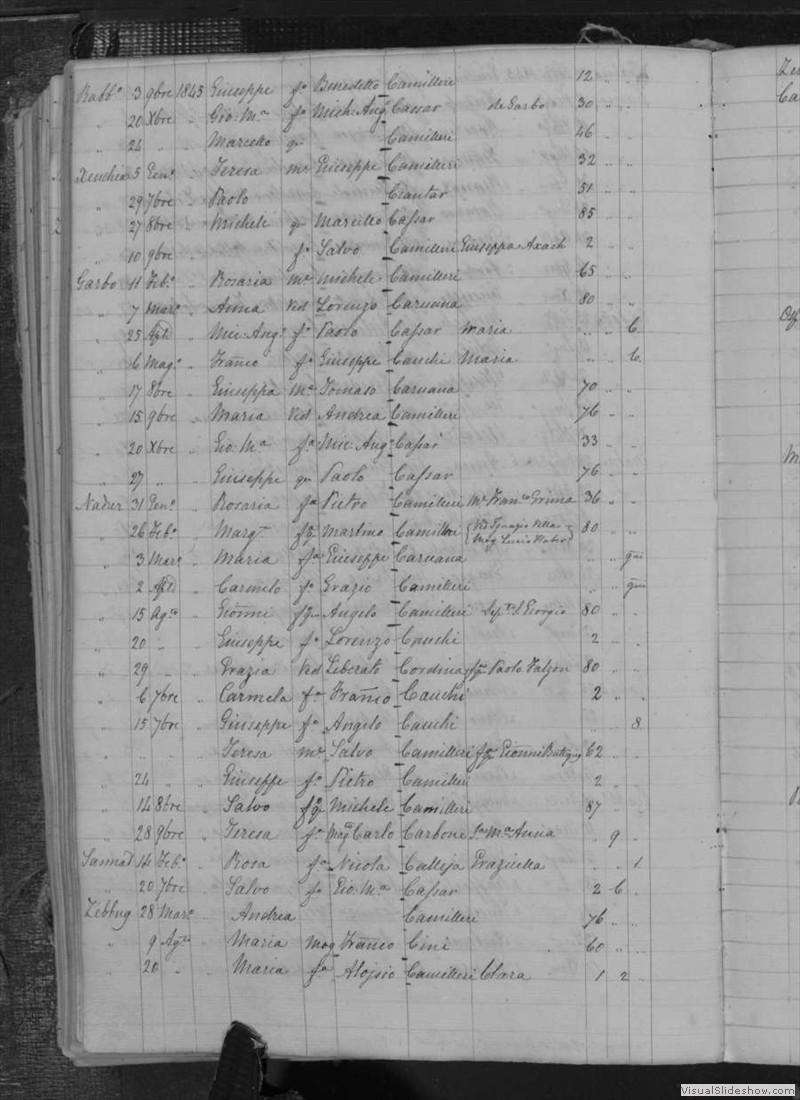 Rabbo 3 9bre 1843 Giuseppe fo Benedetto Camilleri 12 " "
" 20 Xbre " Gio: Ma fo Mich: Angо Cassar de Garbo 30 " "
" 24 " " Marcello qm " Camilleri 46 " "
Xeuchia 5 Geno " Teresa me Giuseppe Camilleri 32 " "
" 29 7bre " Paolo Ciantar 51 " "
" 27 8bre " Michele qm Marcello Cassar 85 " "
" 10 9bre " fo Salvo Camilleri Giuseppa Axach 2 " "
Garbo 11 Febo " Rosaria me Michele Camilleri 65 " "
" 7 Marо " Anna Ved Lorenzo Caruana 80 " "
" 25 Aple " Mic: Ango fo Paolo Cassar Maria " " 6
" 6 Mago " Franco fo Giuseppe Cauchi Maria " " 6
" 17 8bre " Giuseppa Me Tomaso Caruana 70 " "
" 15 9bre " Maria Ved Andrea Camilleri 76 " "
" 20 Xbre " Gio: Ma fa Mic: Ang Cassar 33 " "
" 27 " " Giuseppe qm Paolo Cassar 76 " "
Nadur 31 Geno " Rosaria fa Pietro Camilleri Me Franco Grima 36 " "
" 26 Febo " Marg fq Martino Camilleri Ved Ignazio Vella 80 " "
" 3 Marо " Maria fa Giuseppe Caruana " " qni
" 2 Aple " Carmelo fo Grazio Camilleri " " qni
" 15 Agto " Gionni fqm Angelo Camilleri Septo S. Giorgio 80 " "
" 20 " " Giuseppe fo Lorenzo Cauchi 2 " "
" 29 " " Grazia Ved Liberato Cordina fqm Paolo Falzon 80 " "
" 6 7bre " Carmela fa Franco Cauchi 2 " "
" 15 7bre " Giuseppe fo Angelo Cauchi " " 8
" " " Teresa me Salvo Camilleri fqm Gionni Buttigieg 62 " "
" 24 " " Giuseppe fo Pietro Camilleri 2 " "
" 14 8bre " Salvo fqm Michele Camilleri 87 " "
" 28 9bre " Teresa fa Carlo Carbone Ma Anna " 9 "
Sannad 14 Febo " Rosa fa Nicola Calleja Graziella " " 1
" 20 7bre " Salvo fo Gio: Ma Cassar 2 6 "
Zebbug 28 Marо " Andrea Camilleri 76 " "
" 9 Agto " Maria mog Franco Cini 60 " "
" 20 " " Maria fa Alojsio Camilleri Clara 1 2 "
VisualSlideshow.com